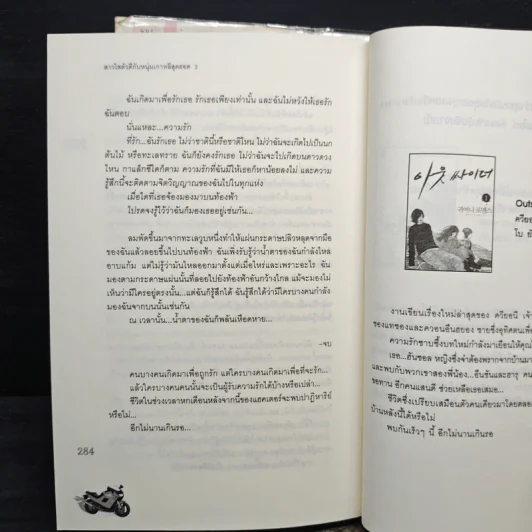 สาวใสตัวดีกับหนุ่มเกาหลีสุดฮอต 2
ฉันเกิดมาเพื่อรักเธอ รักเธอเพียงเท่านั้น และฉันไม่หวังให้เธอรัก
ฉันตอบ
นั่นแหละ...ความรัก
ที่รัก...ฉันรักเธอ ไม่ว่าชาตินี้หรือชาติไหน ไม่ว่าฉันจะเกิดไปเป็นนก
ต้นไม้ หรือทะเลทราย ฉันก็ยังคงรักเธอ ไม่ว่าฉันจะไปเกิดบนดาวดวง
ไหน กาแล็กซีใดก็ตาม ความรักที่ฉันมีให้เธอก็หาน้อยลงไม่ และความ
รู้สึกนี้จะติดตามจิตวิญญาณของฉันไปในทุกแห่ง
เมื่อใดที่เธอจ้องมองมาบนท้องฟ้า
โปรดจงรู้ไว้ว่าฉันก็มองเธออยู่เช่นกัน...
ลมพัดขึ้นมาจากทะเลวูบหนึ่งทำให้แผ่นกระดาษปลิวหลุดจากมือ
ของฉันแล้วลอยขึ้นไปบนท้องฟ้า ฉันเพิ่งรับรู้ว่าน้ำตาของฉันกำลังไหล
อาบแก้ม แต่ไม่รู้ว่ามันไหลออกมาตั้งแต่เมื่อไหร่และเพราะอะไร ฉัน
มองตามกระดาษแผ่นนั้นที่ลอยไปยังท้องฟ้าอันกว้างไกล แม้จะมองไม่
เห็นว่ามีใครอยู่ตรงนั้น...แต่ฉันก็รู้สึกได้ ฉันรู้สึกได้ว่ามีใครบางคนกำลัง
มองฉันจากบนนั้นเช่นกัน
ณ เวลานั้น...น้ำตาของฉันก็พลันเหือดหาย...
-จบ
คนบางคนเกิดมาเพื่อถูกรัก แต่ใครบางคนเกิดมาเพื่อที่จะรัก...
แล้วใครบางคนคนนั้นจะเป็นผู้รับความรักได้บ้างหรือเปล่า...
ชีวิตในช่วงเวลาหกเดือนหลังจากนี้ของแฮคเตอร์จะพบปาฏิหาริย์
หรือไม่...
อีกไม่นานเกินรอ
284
아웃싸이더
1
귀여니
Outs
ควียอ
โบ ยั
งานเขียนเรื่องใหม่ล่าสุดของ ควียอนี เจ้า
ความรักซาบซึ้งบทใหม่กำลังมาเยือนให้คุณไ
เธอ...ฮันซอล หญิงซึ่งจำต้องพรากจากบ้านมา
คบกับพวกเขาสองพี่น้อง...อึนชันและฮารุ คน
ขอทาน อีกคนแสนดี ช่วยเหลือเธอเสมอ...
ชีวิตซึ่งเปรียบเสมือนตัวคนเดียวมาโดยตลอ
บ้านหลังนี้ได้หรือไม่
พบกันเร็วๆ นี้ อีกไม่นานเกินรอ